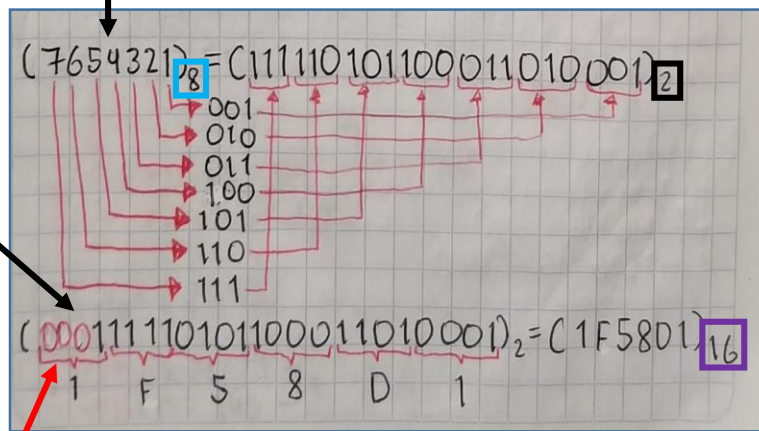 (7654321)8=(111110101100011010001)2
001
010
011
100
101
110
111
(000111110101100011010001)2=(1F5801)16
1 F 5 8 D 1